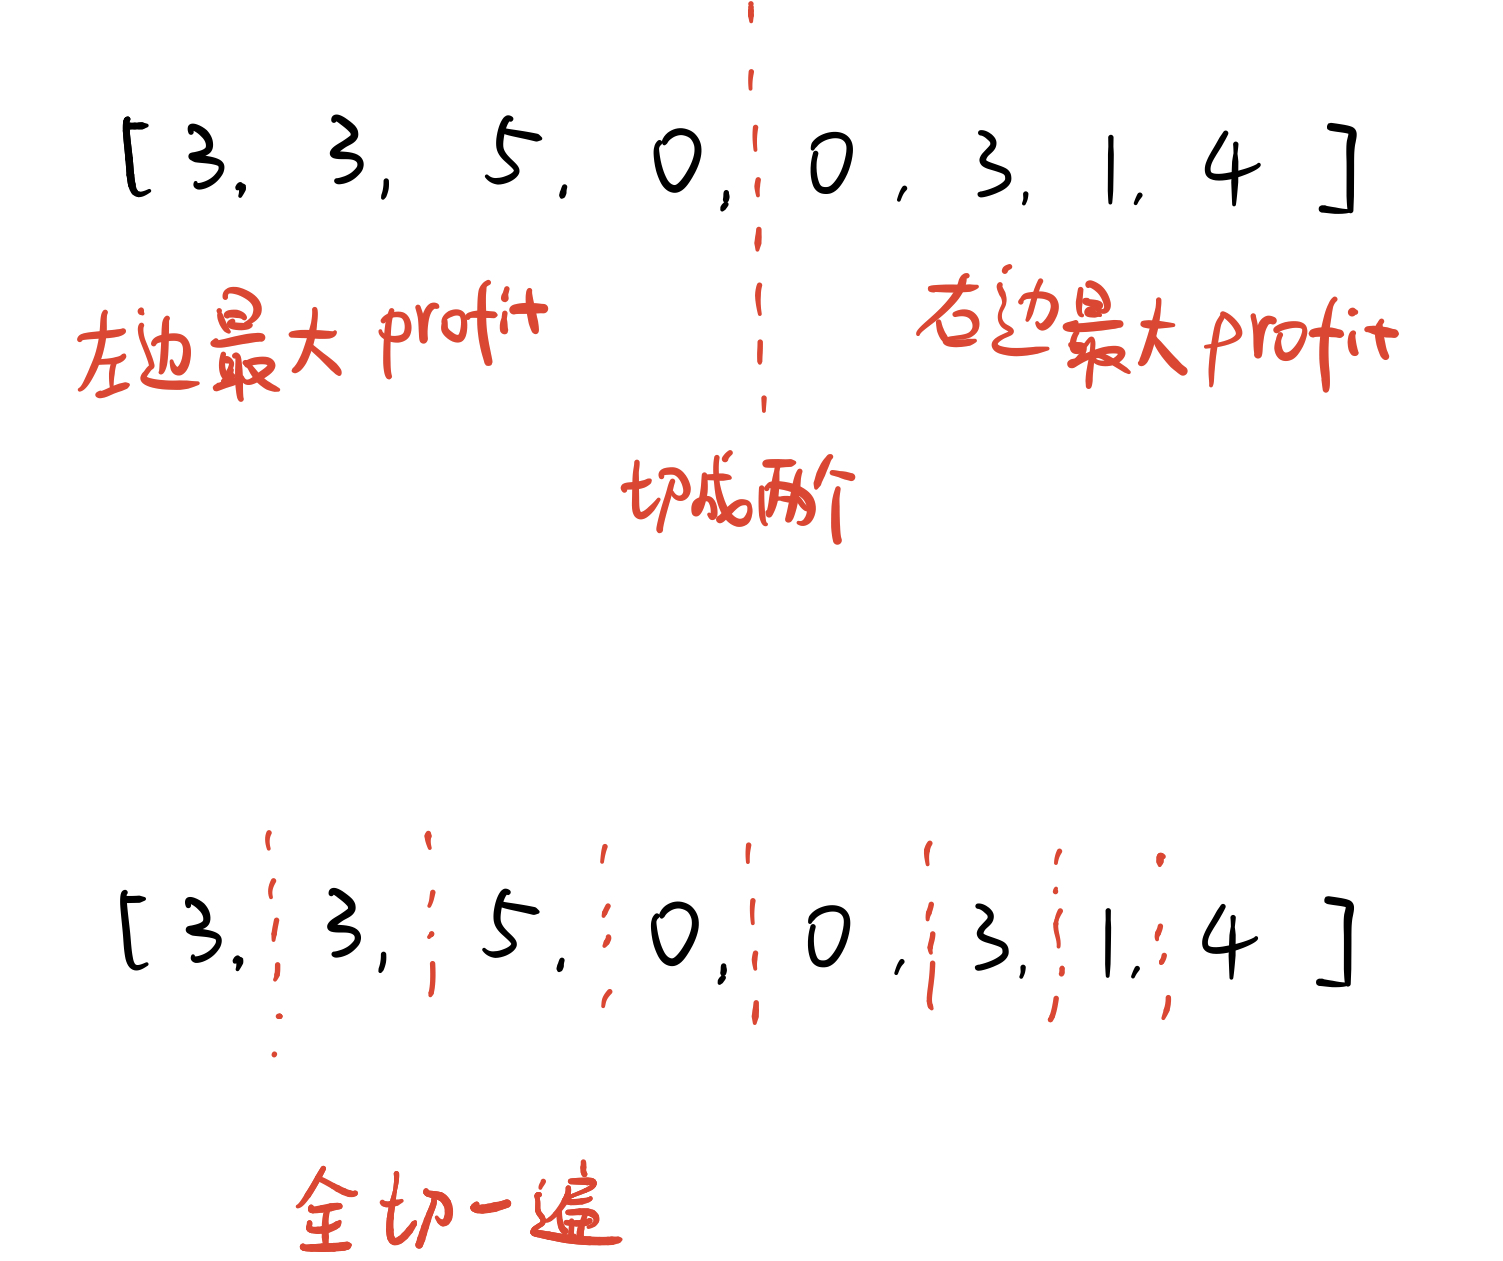 [3, 3, 5, 0, 0, 3, 1, 4]
左边最大profit 右边最大profit
切成两个
[3, 3, 5, 0, 0, 3, 1, 4]
全切一遍